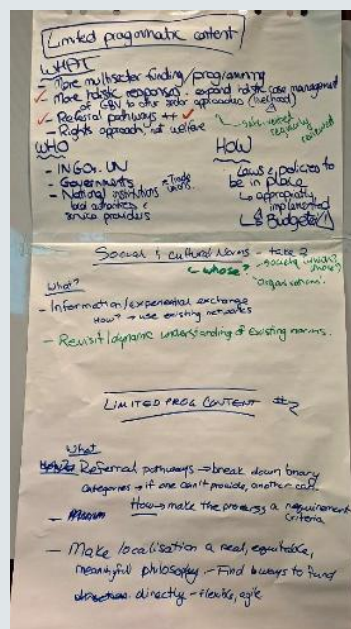 Limited programmatic content
WHAT
- More multisector funding/programming
✓ More holistic responses. expand holistic case management
of GBV to other sector approaches (livelihood)
✓ - Referral pathways ++ ✓
regularly
reviewed
- Rights approach, not welfare
WHO
HOW
- INGOs, UN
- Governments
- Trade
unions
- National institutions
local authorities &
service providers
Laws & policies to
be in place
↳ appropriately
implemented
↳ & Budgeted!
Social & cultural Norms - take 2
↳ whose?
- society, which?
whose?
"Organisations".
What?
- Information/experiential exchange
How? → use existing networks
- Revisit/dynamic understanding of existing norms.
LIMITED PROG CONTENT #2
What
Referral pathways → break down binary
categories → if one can't provide, another can.
How → make the process a requirement
criteria
- Make localisation a real, equitable,
meaningful philosophy. - Find ways to fund
directly - flexible, agile